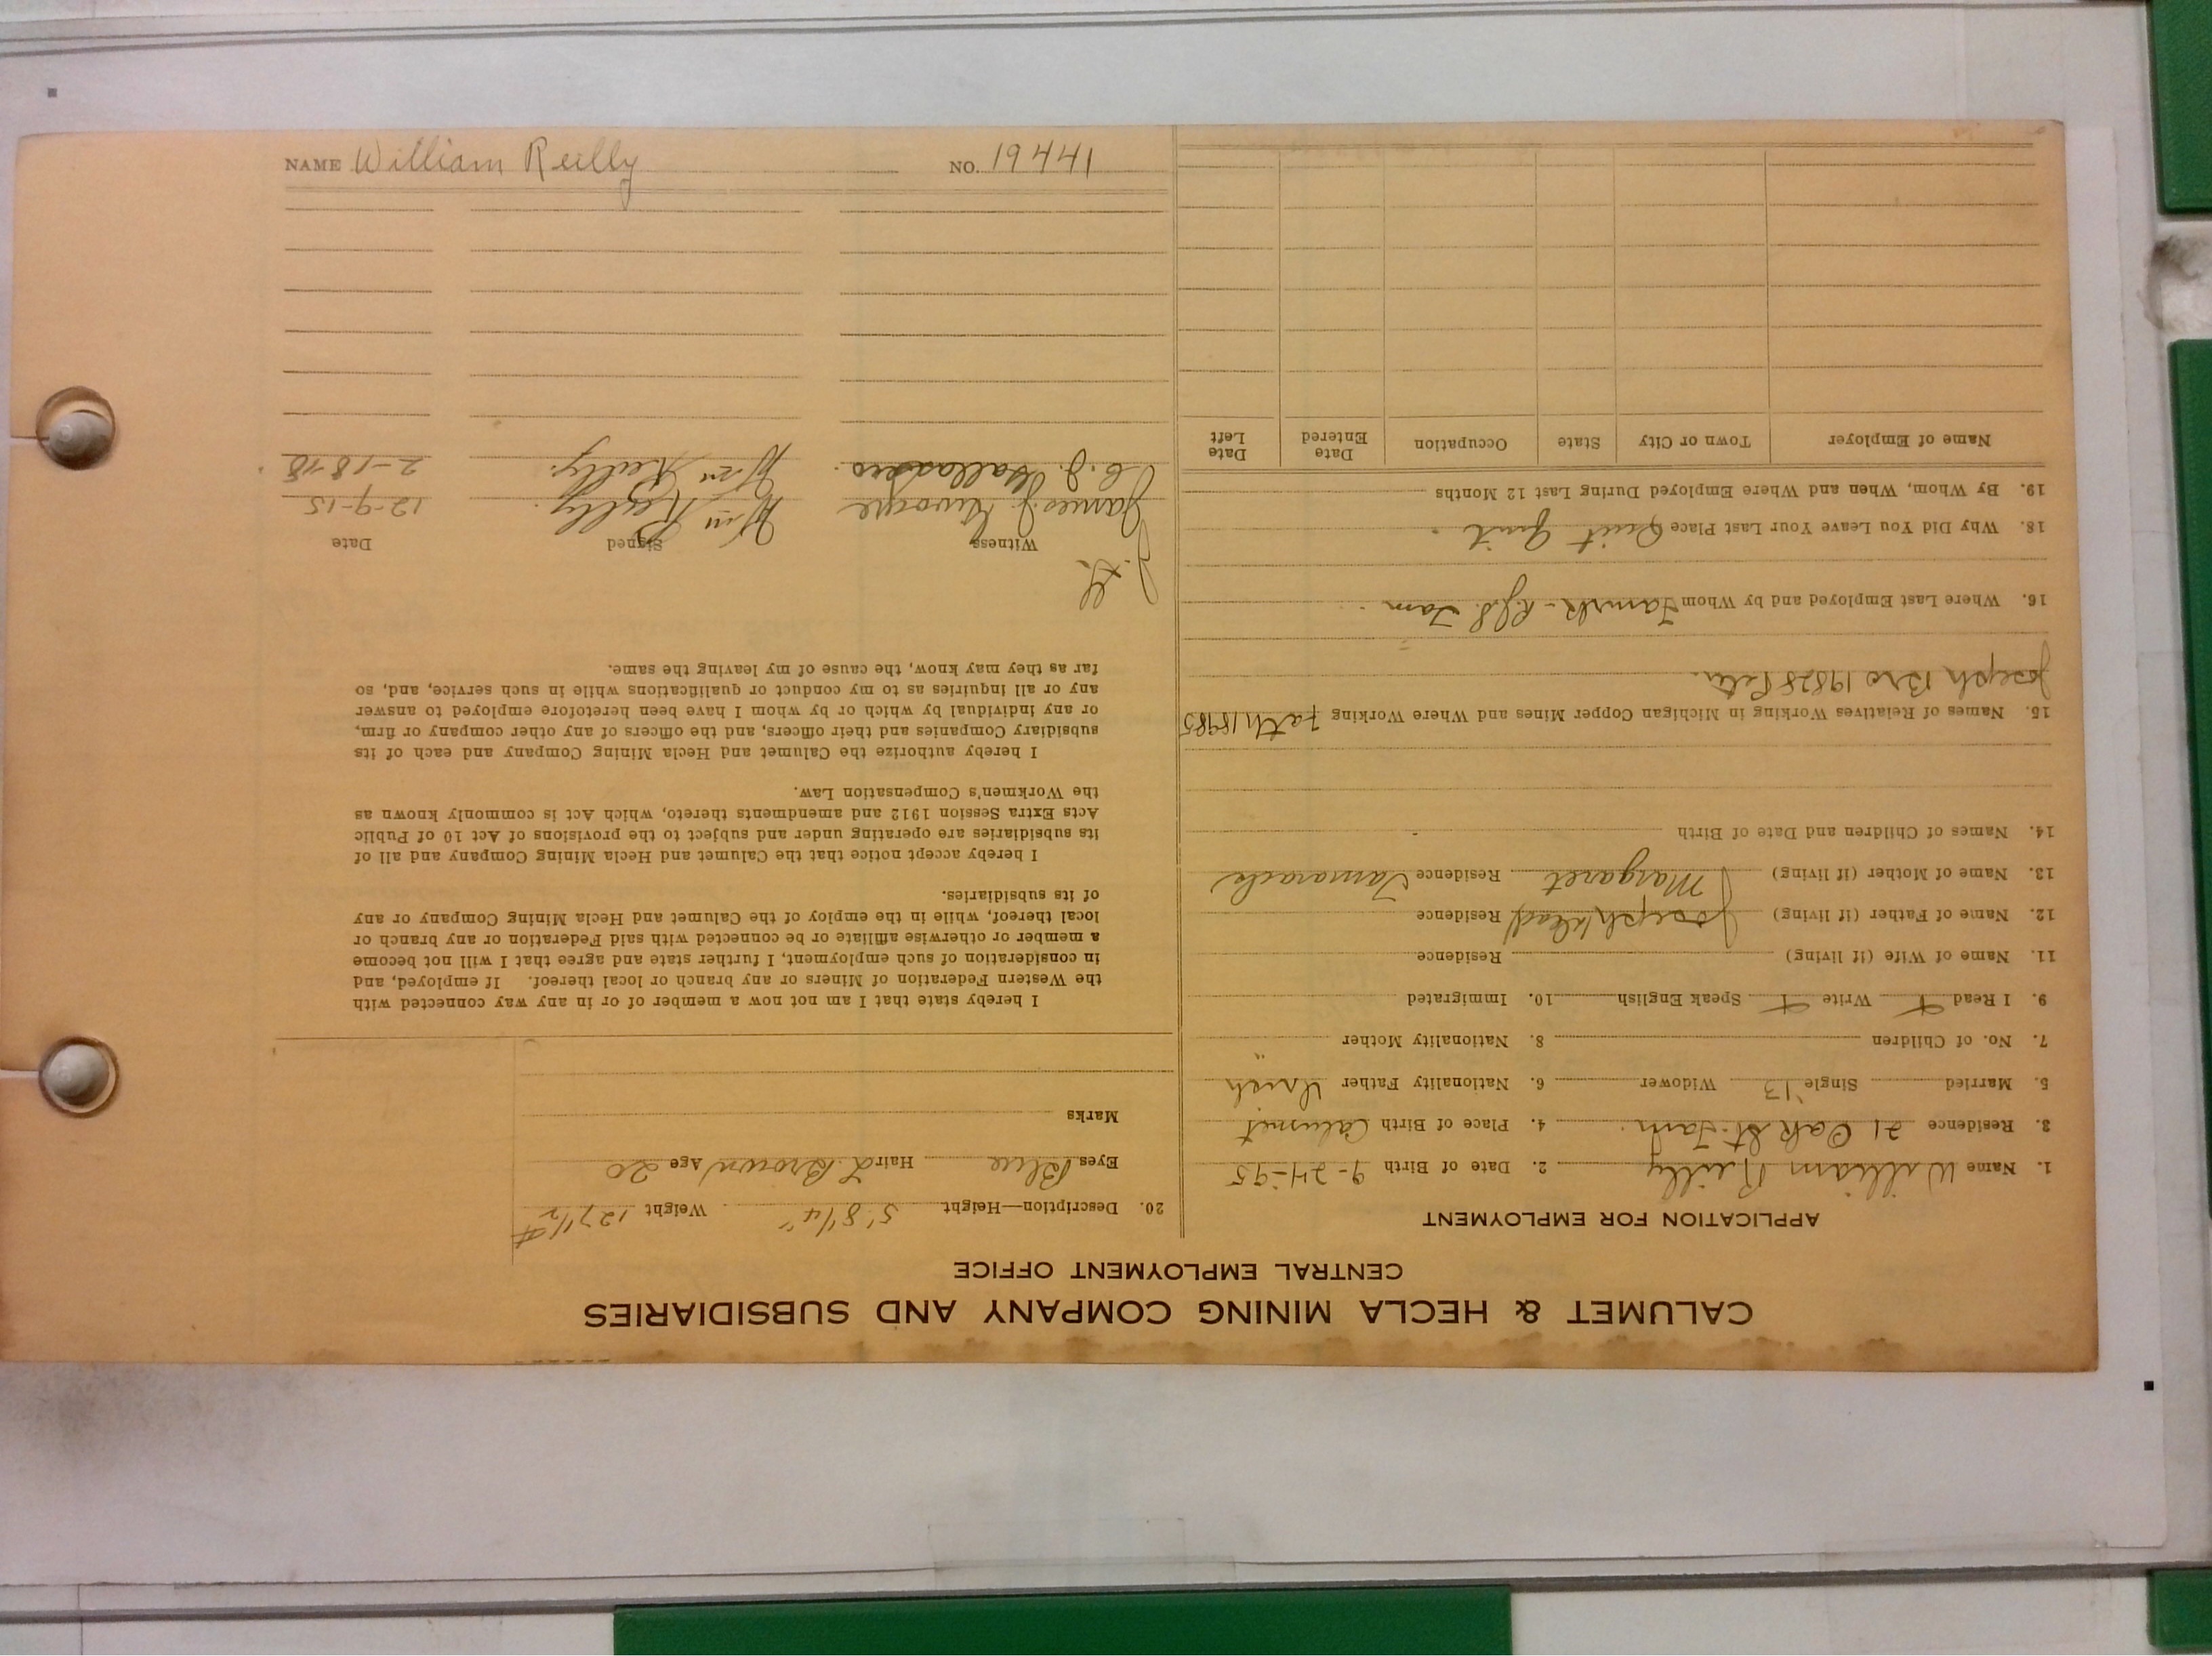 NAME William Reilly NO. 19441
CALUMET & HECLA MINING COMPANY AND SUBSIDIARIES
CENTRAL EMPLOYMENT OFFICE
APPLICATION FOR EMPLOYMENT
1. Name William Reilly 2. Date of Birth 9-24-95
3. Residence 21 Oak St. Tam. 4. Place of Birth Calumet
5. Married Single 13 Widower 6. Nationality Father Irish
7. No. of Children 8. Nationality Mother "
9. I Read Write Speak English 10. Immigrated
11. Name of Wife (if living) Residence
12. Name of Father (if living) Joseph (dead) Residence
13. Name of Mother (if living) Margaret Residence Tamarack
14. Names of Children and Date of Birth -
15. Names of Relatives Working in Michigan Copper Mines and Where Working Fath 18985
Joseph Bro 19828 Peter.
16. Where Last Employed and by Whom Tam
18. Why Did You Leave Your Last Place Quit Quit
19. By Whom, When and Where Employed During Last 12 Months
Name of Employer Town or City State Occupation Date Entered Date Left
20. Description—Height 5' 8 1/4" Weight 127 1/2 #
Eyes Blue Hair L Brown Age 20
Marks
I hereby state that I am not now a member of or in any way connected with
the Western Federation of Miners or any branch or local thereof. If employed, and
in consideration of such employment, I further state and agree that I will not become
a member or otherwise affiliate or be connected with said Federation or any branch or
local thereof, while in the employ of the Calumet and Hecla Mining Company or any
of its subsidiaries.
I hereby accept notice that the Calumet and Hecla Mining Company and all of
its subsidiaries are operating under and subject to the provisions of Act 10 of Public
Acts Extra Session 1912 and amendments thereto, which Act is commonly known as
the Workmen's Compensation Law.
I hereby authorize the Calumet and Hecla Mining Company and each of its
subsidiary Companies and their officers, and the officers of any other company or firm,
or any individual by which or by whom I have been heretofore employed to answer
any or all inquiries as to my conduct or qualifications while in such service, and, so
far as they may know, the cause of my leaving the same.
Witness Signed Date
James J. Wm Reilly. 12-9-15
C. J. Wm Reilly. 2-18-18